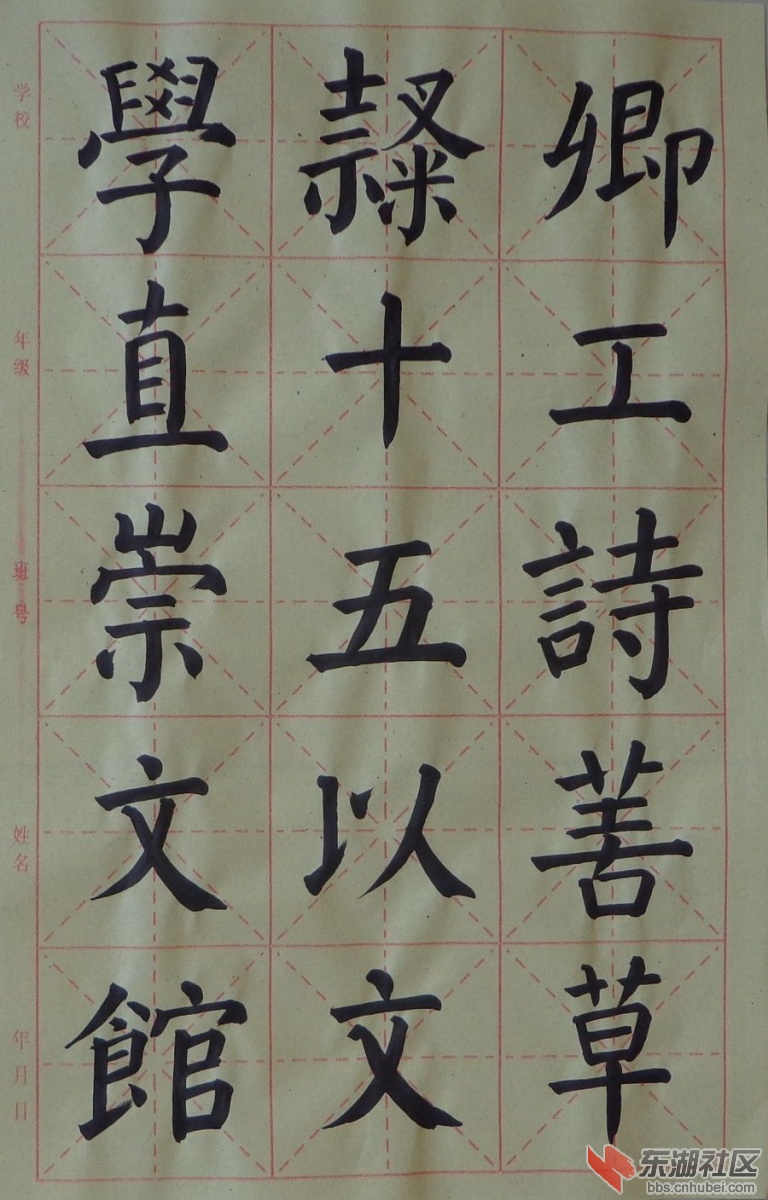 卿工詩善草
隸十五以文
學直崇文館
学校
年级
班号
姓名
年月日
东湖社区
bbs.cnhubei.com